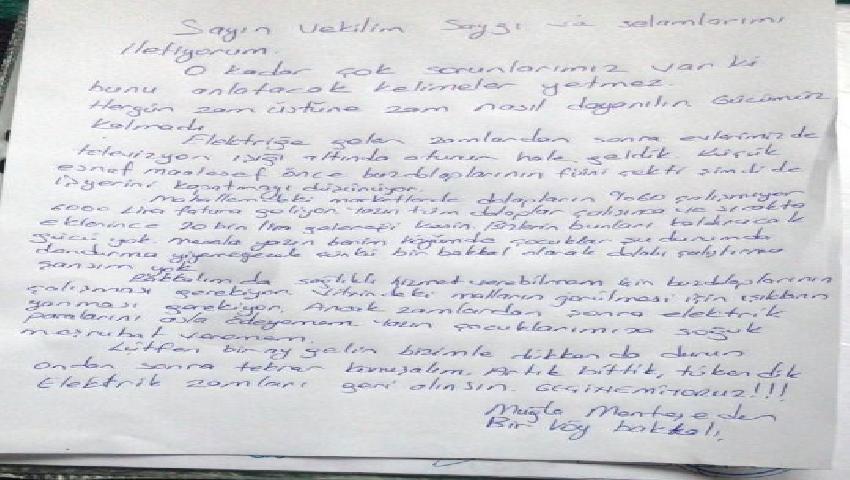 Sayın Vekilim Saygı ve selamlarımı
iletiyorum.
O kadar çok sorunlarımız var ki
bunu anlatacak kelimeler yetmez.
Hergün zam üstüne zam nasıl dayanılır Gücümüz
kalmadı
Elektriğe gelen zamlardan sonra evlerimizde
televizyon ışığı altında oturur hale geldik. Küçük
esnaf maalesef önce buzdolaplarının fişini çekti şimdi de
işyerini kapatmayı düşünüyor.
Mahallemdeki marketlerde dolapların %60 çalışmıyor
6000 Lira fatura geliyor. Yazın tüm dolaplar çalışınca ve
eklenince 20 bin lira geleceği kesin. Bizlerin bunları kaldıracak
gücü yok. Mesela yazın benim köyümde çocuklar şu durumda
dondurma yiyemeyecek çünkü bir bakkal olarak dolabı çalıştırma
şansım yok
Bakkalımda sağlıklı hizmet verebilmem için buzdolaplarının
çalışması gerekiyor. Vitrindeki malların görülmesi için ışıkların
yanması gerekiyor. Ancak zamlardan sonra elektrik
paralarını asla ödeyemem. Yazın çocuklarımıza soğuk
meşrubat veremem.
Lütfen bir ay gelin bizimle dükkanda durun
ondan sonra tekrar konuşalım. Artık bittik, tükendik
Elektrik zamları geri alınsın. GEÇİNEMİYORUZ!!!
Muğla Menteşe'den
Bir Köy bakkalı,